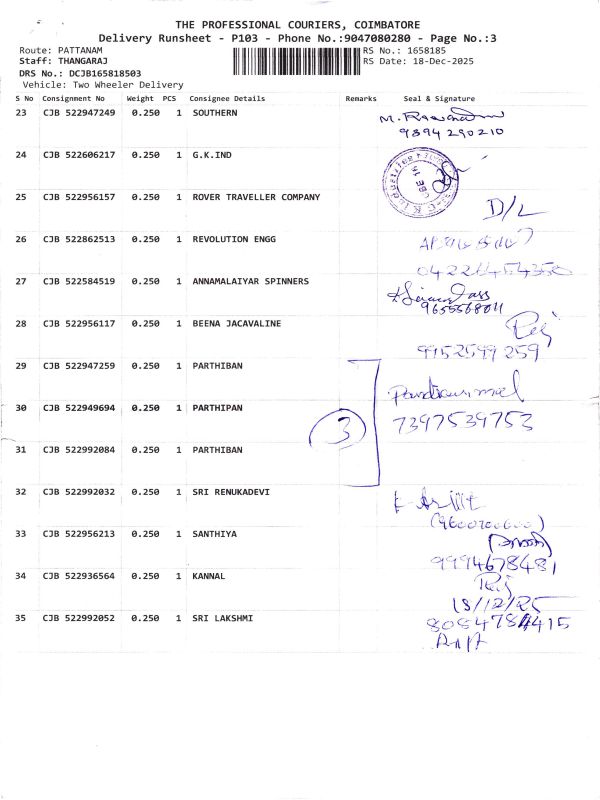 THE PROFESSIONAL COURIERS, COIMBATORE
Delivery Runsheet - P103 - Phone No.:9047080280 - Page No.:3
Route: PATTANAM RS No.: 1658185
Staff: THANGARAJ RS Date: 18-Dec-2025
DRS No.: DCJB165818503
Vehicle: Two Wheeler Delivery
S No Consignment No Weight PCS Consignee Details Remarks Seal & Signature
23 CJB 522947249 0.250 1 SOUTHERN
9394290210
24 CJB 522606217 0.250 1 G.K.IND
25 CJB 522956157 0.250 1 ROVER TRAVELLER COMPANY D/L
26 CJB 522862513 0.250 1 REVOLUTION ENGG
27 CJB 522584519 0.250 1 ANNAMALAIYAR SPINNERS
9655568011
28 CJB 522956117 0.250 1 BEENA JACAVALINE
9952599259
29 CJB 522947259 0.250 1 PARTHIBAN
30 CJB 522949694 0.250 1 PARTHIPAN 3 7397539753
31 CJB 522992084 0.250 1 PARTHIBAN
32 CJB 522992032 0.250 1 SRI RENUKADEVI
33 CJB 522956213 0.250 1 SANTHIYA
9994678481
34 CJB 522936564 0.250 1 KANNAL
18/12/25
35 CJB 522992052 0.250 1 SRI LAKSHMI